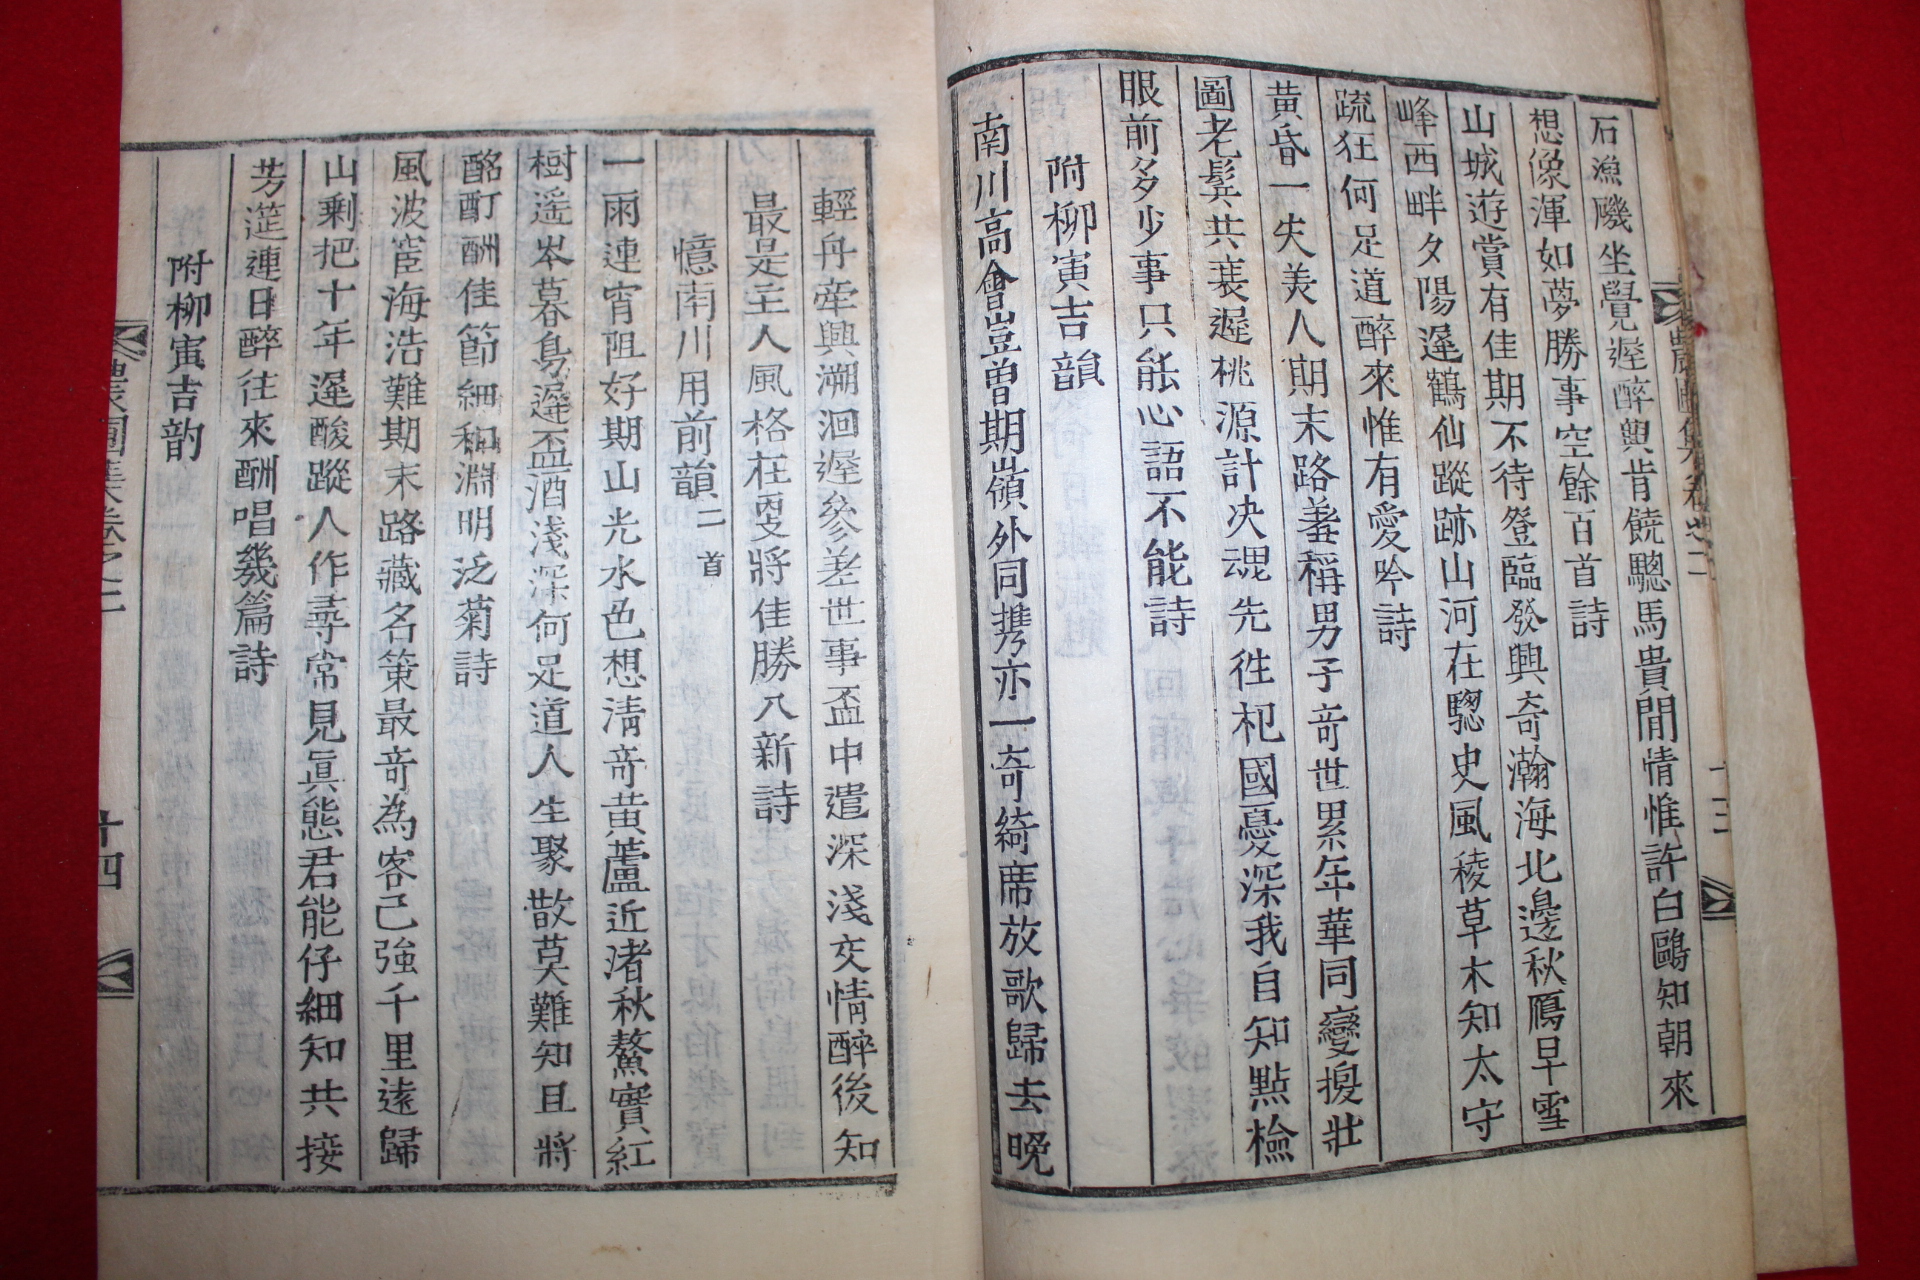 石漁磯坐覺遲醉輿肯饒驄馬貴閒情惟許白鷗知朝來
想像渾如夢勝事空餘百首詩
山城遊賞有佳期不待登臨發興奇瀚海北邊秋鴈早雪
峰西畔夕陽遲鶴仙蹤跡山河在驄史風稜草木知太守
疏狂何足道醉來惟有愛吟詩
黃昏一失美人期末路羞稱男子奇世累年華同變換壯
圖老鬂共衰遲桃源計决魂先徃杞國憂深我自知點檢
眼前多少事只能心語不能詩
附柳寅吉韻
南川高會豈曾期嶺外同携亦一奇綺席放歌歸去晩
輕舟牽興溯洄遲參差世事盃中遣深淺交情醉後知
最是主人風格在要將佳勝入新詩
憶南川用前韻二首
一雨連宵阻好期山光水色想淸奇黃蘆近渚秋鰲實紅
樹遙岑暮鳥遲盃酒淺深何足道人生聚散莫難知且將
酩酊酬佳節細和淵明泛菊詩
風波宦海浩難期末路藏名策最奇為客已強千里遠歸
山剩把十年遲酸蹤人作尋常見眞態君能仔細知共接
芳筵連日醉往來酬唱幾篇詩
附柳寅吉韵
農圃集卷之二
十四